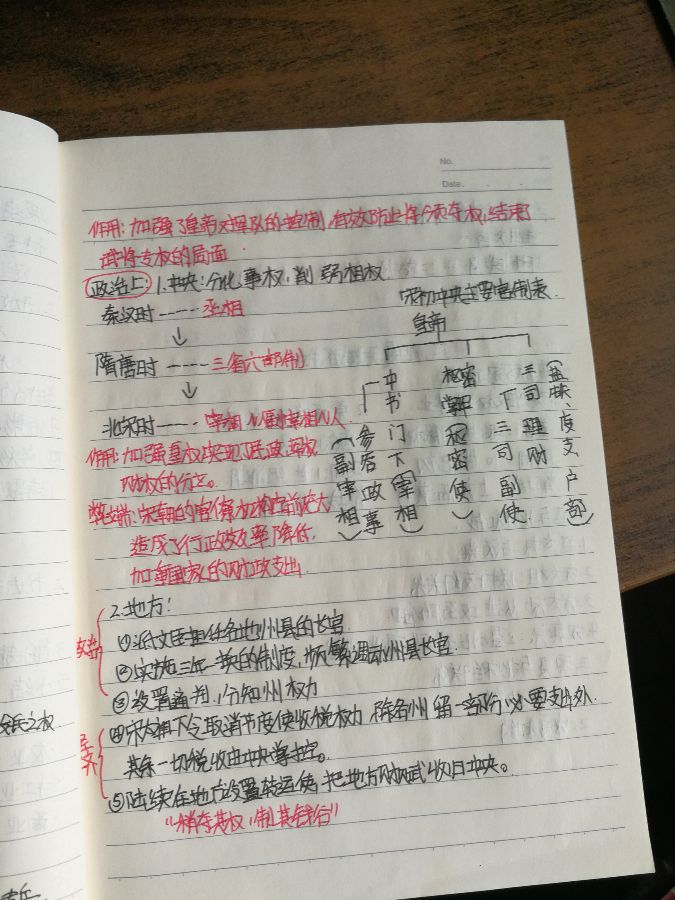 No.
Date.
作用：加强了皇帝对军队的控制，有效防止将领夺权，结束了
武将专权的局面
政治上：1.中央：分化事权，削弱相权
宋初中央主要官制表
秦汉时-----丞相
皇帝
隋唐时----三省六部制
北宋时----宰相
中书门下（宰相）
参知政事（副宰相）
枢密
枢密使
三司
三司副使
（盐铁、度支、户部）
作用：加强皇权，实现民政、军权、
财权的分立。
弊端：宋朝的官僚机构空前庞大
造成了行政效率降低，
加重国家的财政支出
2.地方：
①派文臣担任各地州县的长官
②实施三年一换的制度，频繁调动州县长官
③设置通判，分知州权力
④宋太祖下令取消节度使收税权力，除各州留一部分必要支出外
其余一切税收由中央掌控。
⑤陆续在地方设置转运使，把地方财赋收归中央。
“稍夺其权，制其钱谷”
兵之权